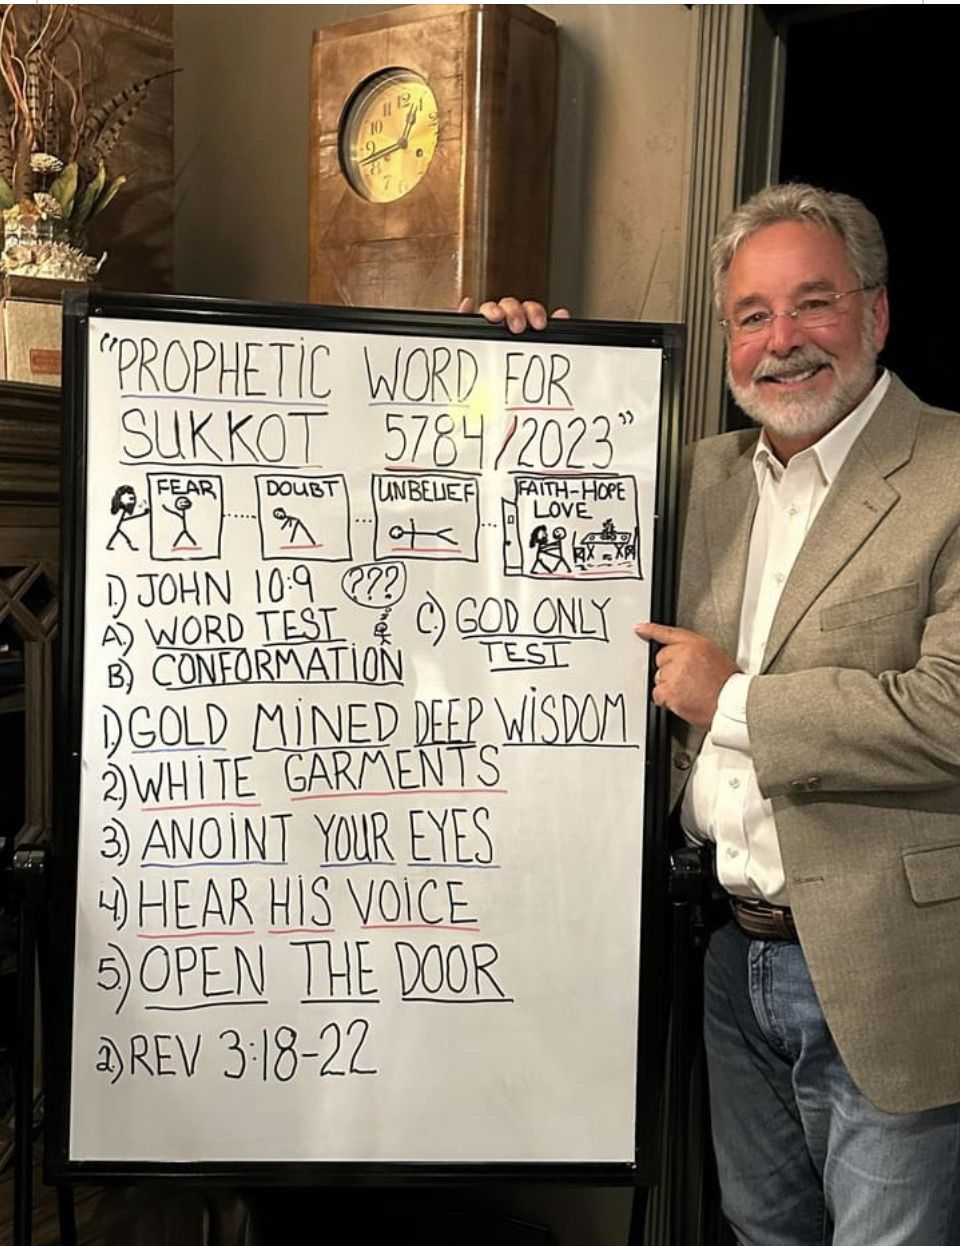 "PROPHETIC WORD FOR
SUKKOT 5784/2023"
FEAR
DOUBT
UNBELIEF
FAITH-HOPE
LOVE
1.) JOHN 10:9
???
A.) WORD TEST
B.) CONFORMATION
C.) GOD ONLY
TEST
1.) GOLD MINED DEEP WISDOM
2.) WHITE GARMENTS
3.) ANOINT YOUR EYES
4.) HEAR HIS VOICE
5.) OPEN THE DOOR
2.) REV 3:18-22
11 12 1
10 2
9
8
7 6 5